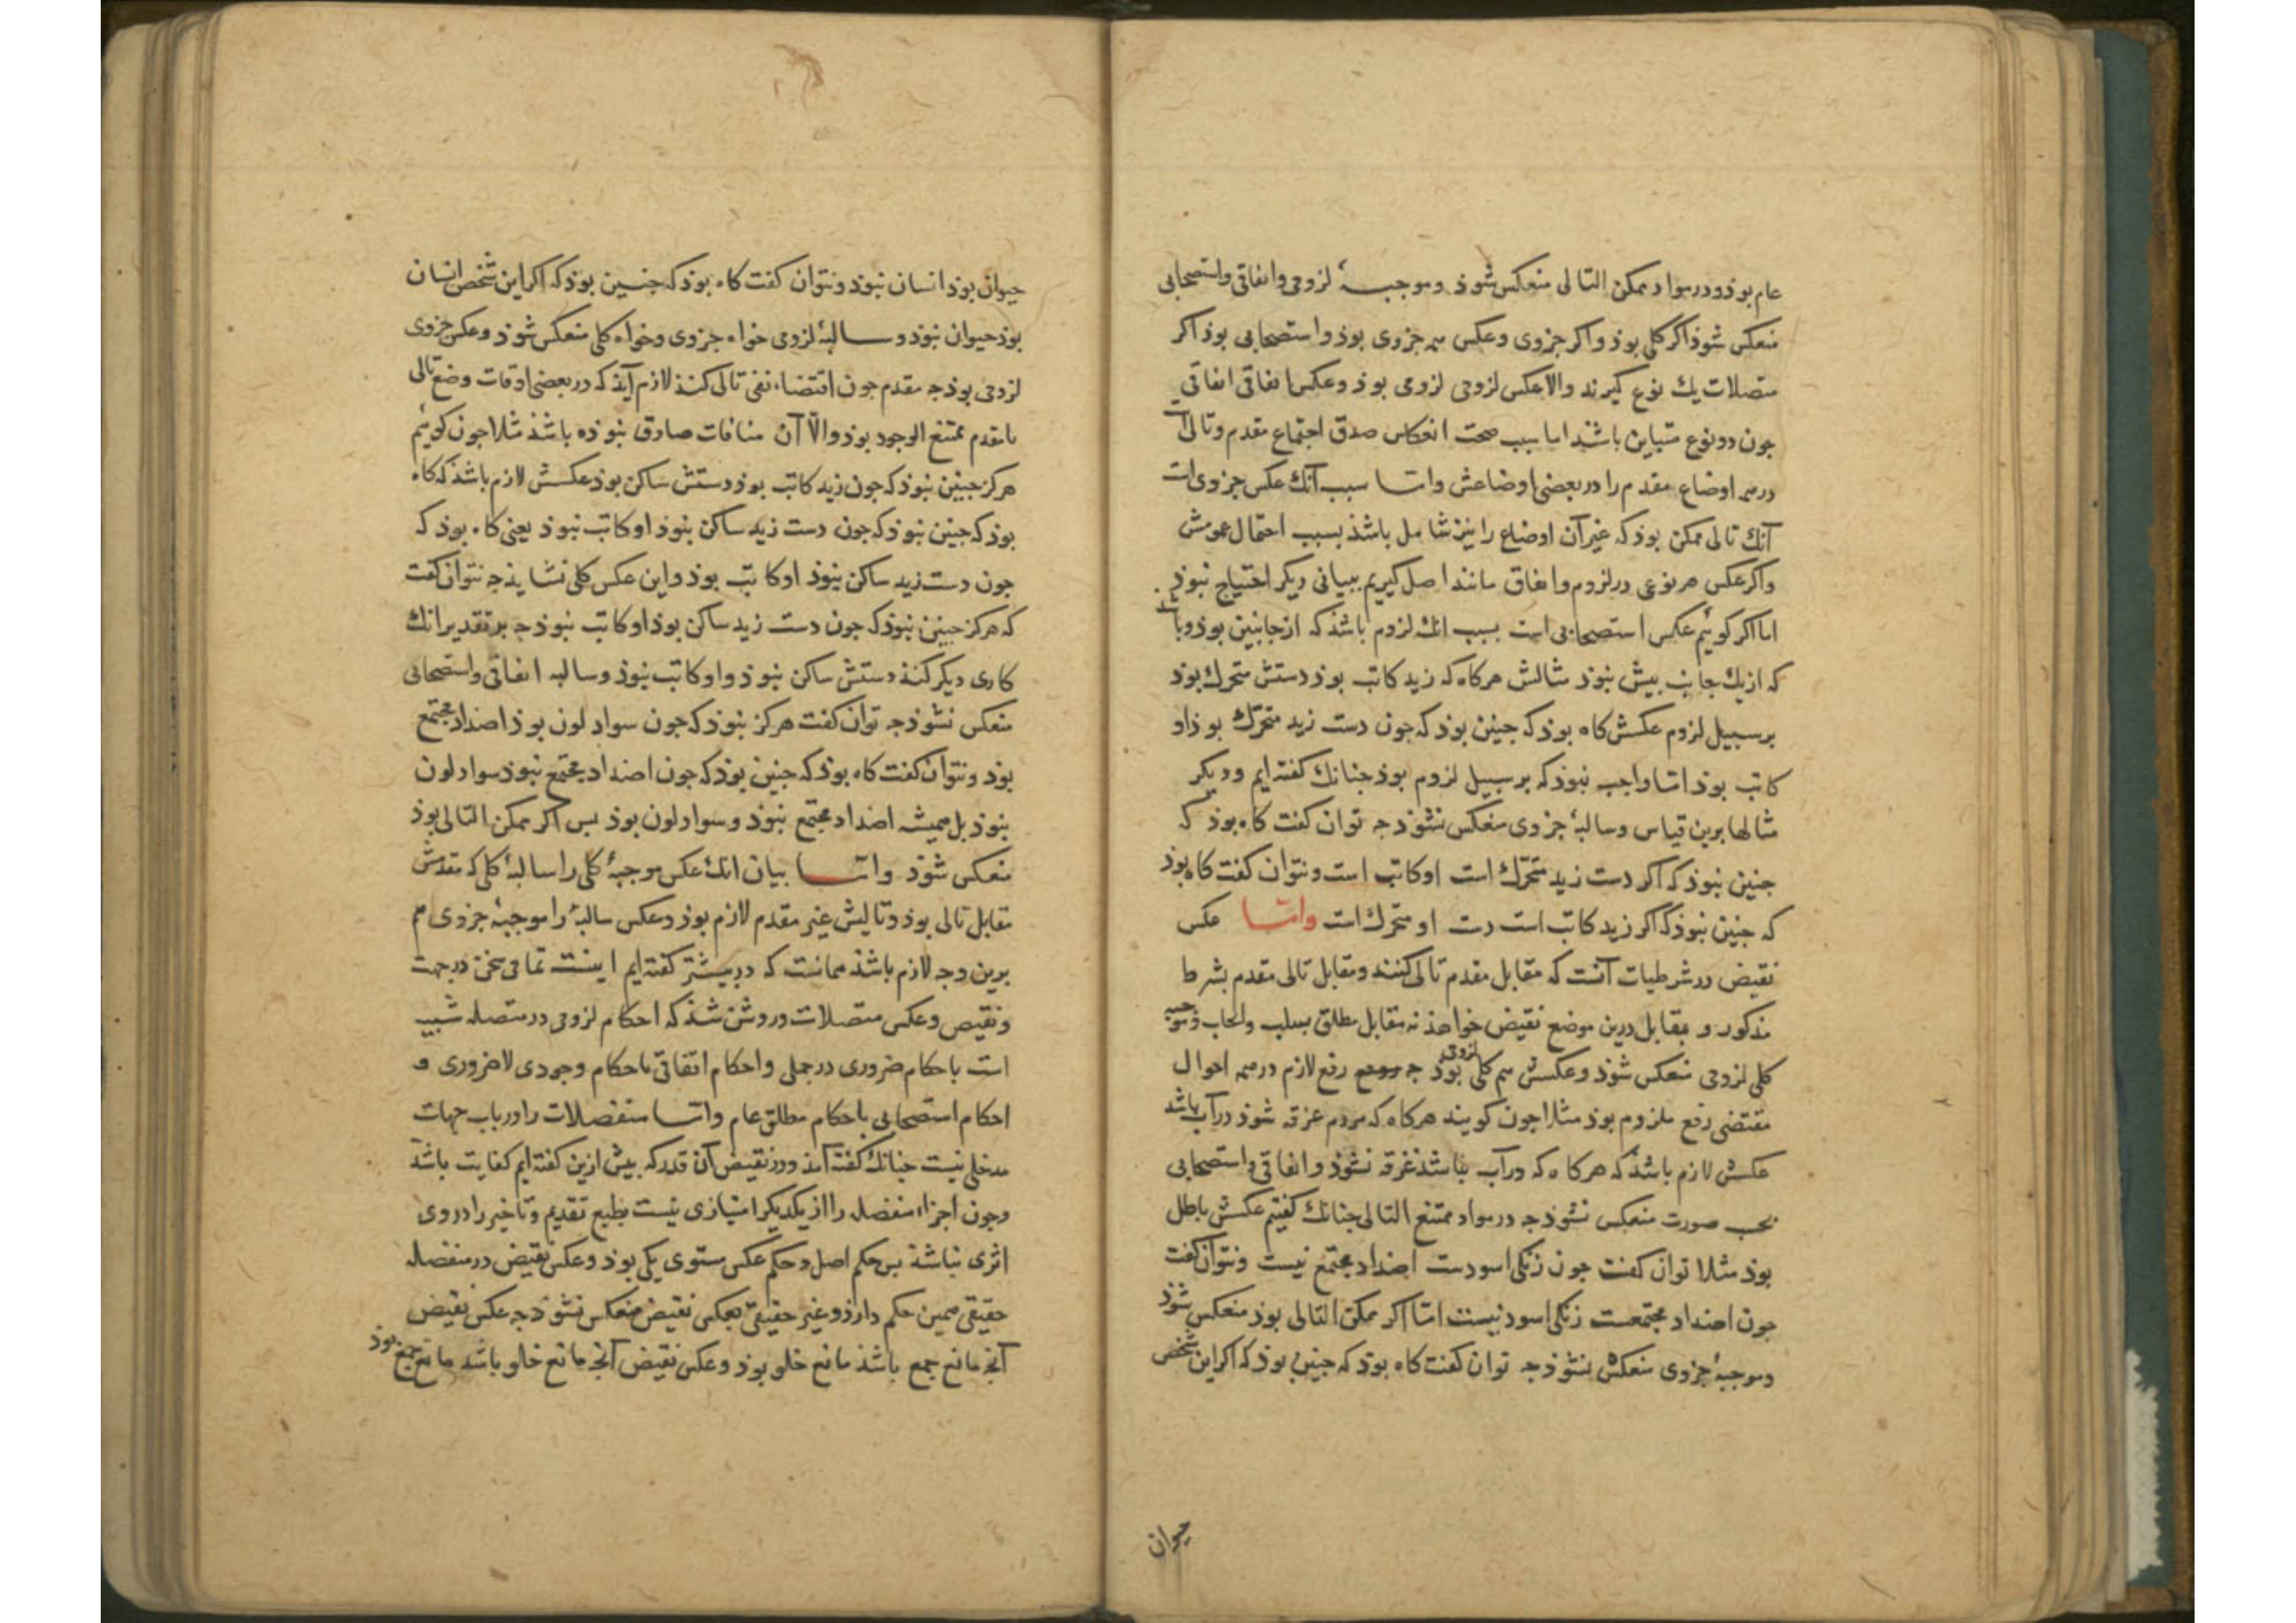 عام بوذ و در مواد ممکن التالی منعکس شوذ و موجبهٔ لزومی و اتفاقی و استصحابی
منعکس شوذ اکر کلی بوذ و اکر جزوی و عکس همه جزوی بوذ و استصحابی بوذ اکر
متصلات یک نوع کیرند والا عکس لزومی لزومی بوذ و عکس اتفاقی اتفاقی
جون دو نوع متباین باشند اما سبب صحت انعکاس صدق اجتماع مقدم و تالی است
در همه اوضاع مقدم را در بعضی اوضاعش و اما سبب آنک عکس جزوی است
آنک تالی ممکن بوذ که غیر آن اوضاع را نیز شامل باشذ بسبب احتمال عمومش
و اکر عکس هر نوعی در لزوم و اتفاق مانند اصل کیریم ببیانی دیکر احتیاج نبوذ
اما اکر کوئیم عکس استصحابی است بسبب انک لزوم باشذ که از جانبین بوذ و باشد
که از یک جانب بیش نبوذ مثالش هرکاه که زید کاتب بوذ دستش متحرک بوذ
بر سبیل لزوم عکسش کاه بوذ که جنین بوذ که جون دست زید متحرک بوذ او
کاتب بوذ اما واجب نبوذ که بر سبیل لزوم بوذ جنانک کفته ایم و دیکر
مثالها برین قیاس و سالبهٔ جزوی منعکس نشوذ جه توان کفت کاه بوذ که
جنین نبوذ که اکر دست زید متحرک است او کاتب است و نتوان کفت کاه بوذ
که جنین نبوذ که اکر زید کاتب است دست او متحرک است و اما عکس
نقیض در شرطیات آنست که مقابل مقدم تالی کنند و مقابل تالی مقدم بشرط
مذکور و بمقابل درین موضع نقیض خواهند نه مقابل مطلق بسلب و ایجاب و موجبه
کلی لزومی منعکس شوذ و عکسش هم کلی لزومی بوذ جه رفع لازم در همه احوال
مقتضی رفع ملزوم بوذ مثلا جون کویند هرکاه که مردم غرقه شوذ در آب باشد
عکسش لازم باشذ که هرکاه که در آب نباشذ غرقه نشوذ و اتفاقی و استصحابی
بحسب صورت منعکس نشوذ جه در مواد ممتنع التالی جنانک کفتیم عکسش باطل
بوذ مثلا توان کفت جون زنکی اسودست اضداد مجتمع نیست و نتوان کفت
جون اضداد مجتمعست زنکی اسود نیست اما اکر ممکن التالی بوذ منعکس شوذ
و موجبهٔ جزوی منعکس نشوذ جه توان کفت کاه بوذ که جنین بوذ که اکر این شخص
حیوان
حیوان بوذ انسان نبوذ و نتوان کفت کاه بوذ که جنین بوذ که اکر این شخص انسان
بوذ حیوان نبوذ و سالبهٔ لزومی خواه جزوی و خواه کلی منعکس شوذ و عکس جزوی
لزومی بوذ جه مقدم جون اقتضاء نفی تالی کنذ لازم آیذ که در بعضی اوقات وضع تالی
با مقدم ممتنع الوجود بوذ والا آن منافات صادق نبوذه باشذ مثلا جون کوئیم
هرکز جنین نبوذ که جون زید کاتب بوذ دستش ساکن بوذ عکسش لازم باشذ که کاه
بوذ که جنین نبوذ که جون دست زید ساکن نبوذ او کاتب نبوذ یعنی کاه بوذ که
جون دست زید ساکن نبوذ او کاتب بوذ و این عکس کلی نشایذ جه نتوان کفت
که هرکز جنین نبوذ که جون دست زید ساکن بوذ او کاتب نبوذ جه بر تقدیر انک
کاری دیکر کنذ دستش ساکن نبوذ و او کاتب نبوذ و سالبه اتفاقی و استصحابی
منعکس نشوذ جه توان کفت هرکز نبوذ که جون سواد لون بوذ اضداد مجتمع
بوذ و نتوان کفت کاه بوذ که جنین بوذ که جون اضداد مجتمع نبوذ سواد لون
نبوذ بل همیشه اضداد مجتمع نبوذ و سواد لون بوذ بس اکر ممکن التالی بوذ
منعکس شوذ و اما بیان انک عکس موجبهٔ کلی را سالبهٔ کلی که مقدمش
مقابل تالی بوذ و تالیش غیر مقدم لازم بوذ و عکس سالبهٔ را موجبهٔ جزوی هم
برین وجه لازم باشذ همانست که در بیشتر کفته ایم اینست تمامی سخن در جهت
و نقیض و عکس متصلات و روشن شذ که احکام لزومی در متصله شبیه
است باحکام ضروری در حملی و احکام اتفاقی باحکام وجودی لاضروری و
احکام استصحابی باحکام مطلق عام و اما منفصلات را در باب جهات
مدخلی نیست جنانک کفته آمذ و در نقیض آن قدر که بیش ازین کفته ایم کفایت باشذ
و جون اجزاء منفصله را از یکدیکر امتیازی نیست بطبع تقدیم و تاخیر را در وی
اثری نباشذ بس حکم اصل و حکم عکس مستوی یکی بوذ و عکس نقیض در منفصله
حقیقی همین حکم دارذ و غیر حقیقی بعکس نقیض منعکس نشوذ جه عکس نقیض
آنجه مانع جمع باشذ مانع خلو بوذ و عکس نقیض آنجه مانع خلو باشذ مانع جمع بوذ